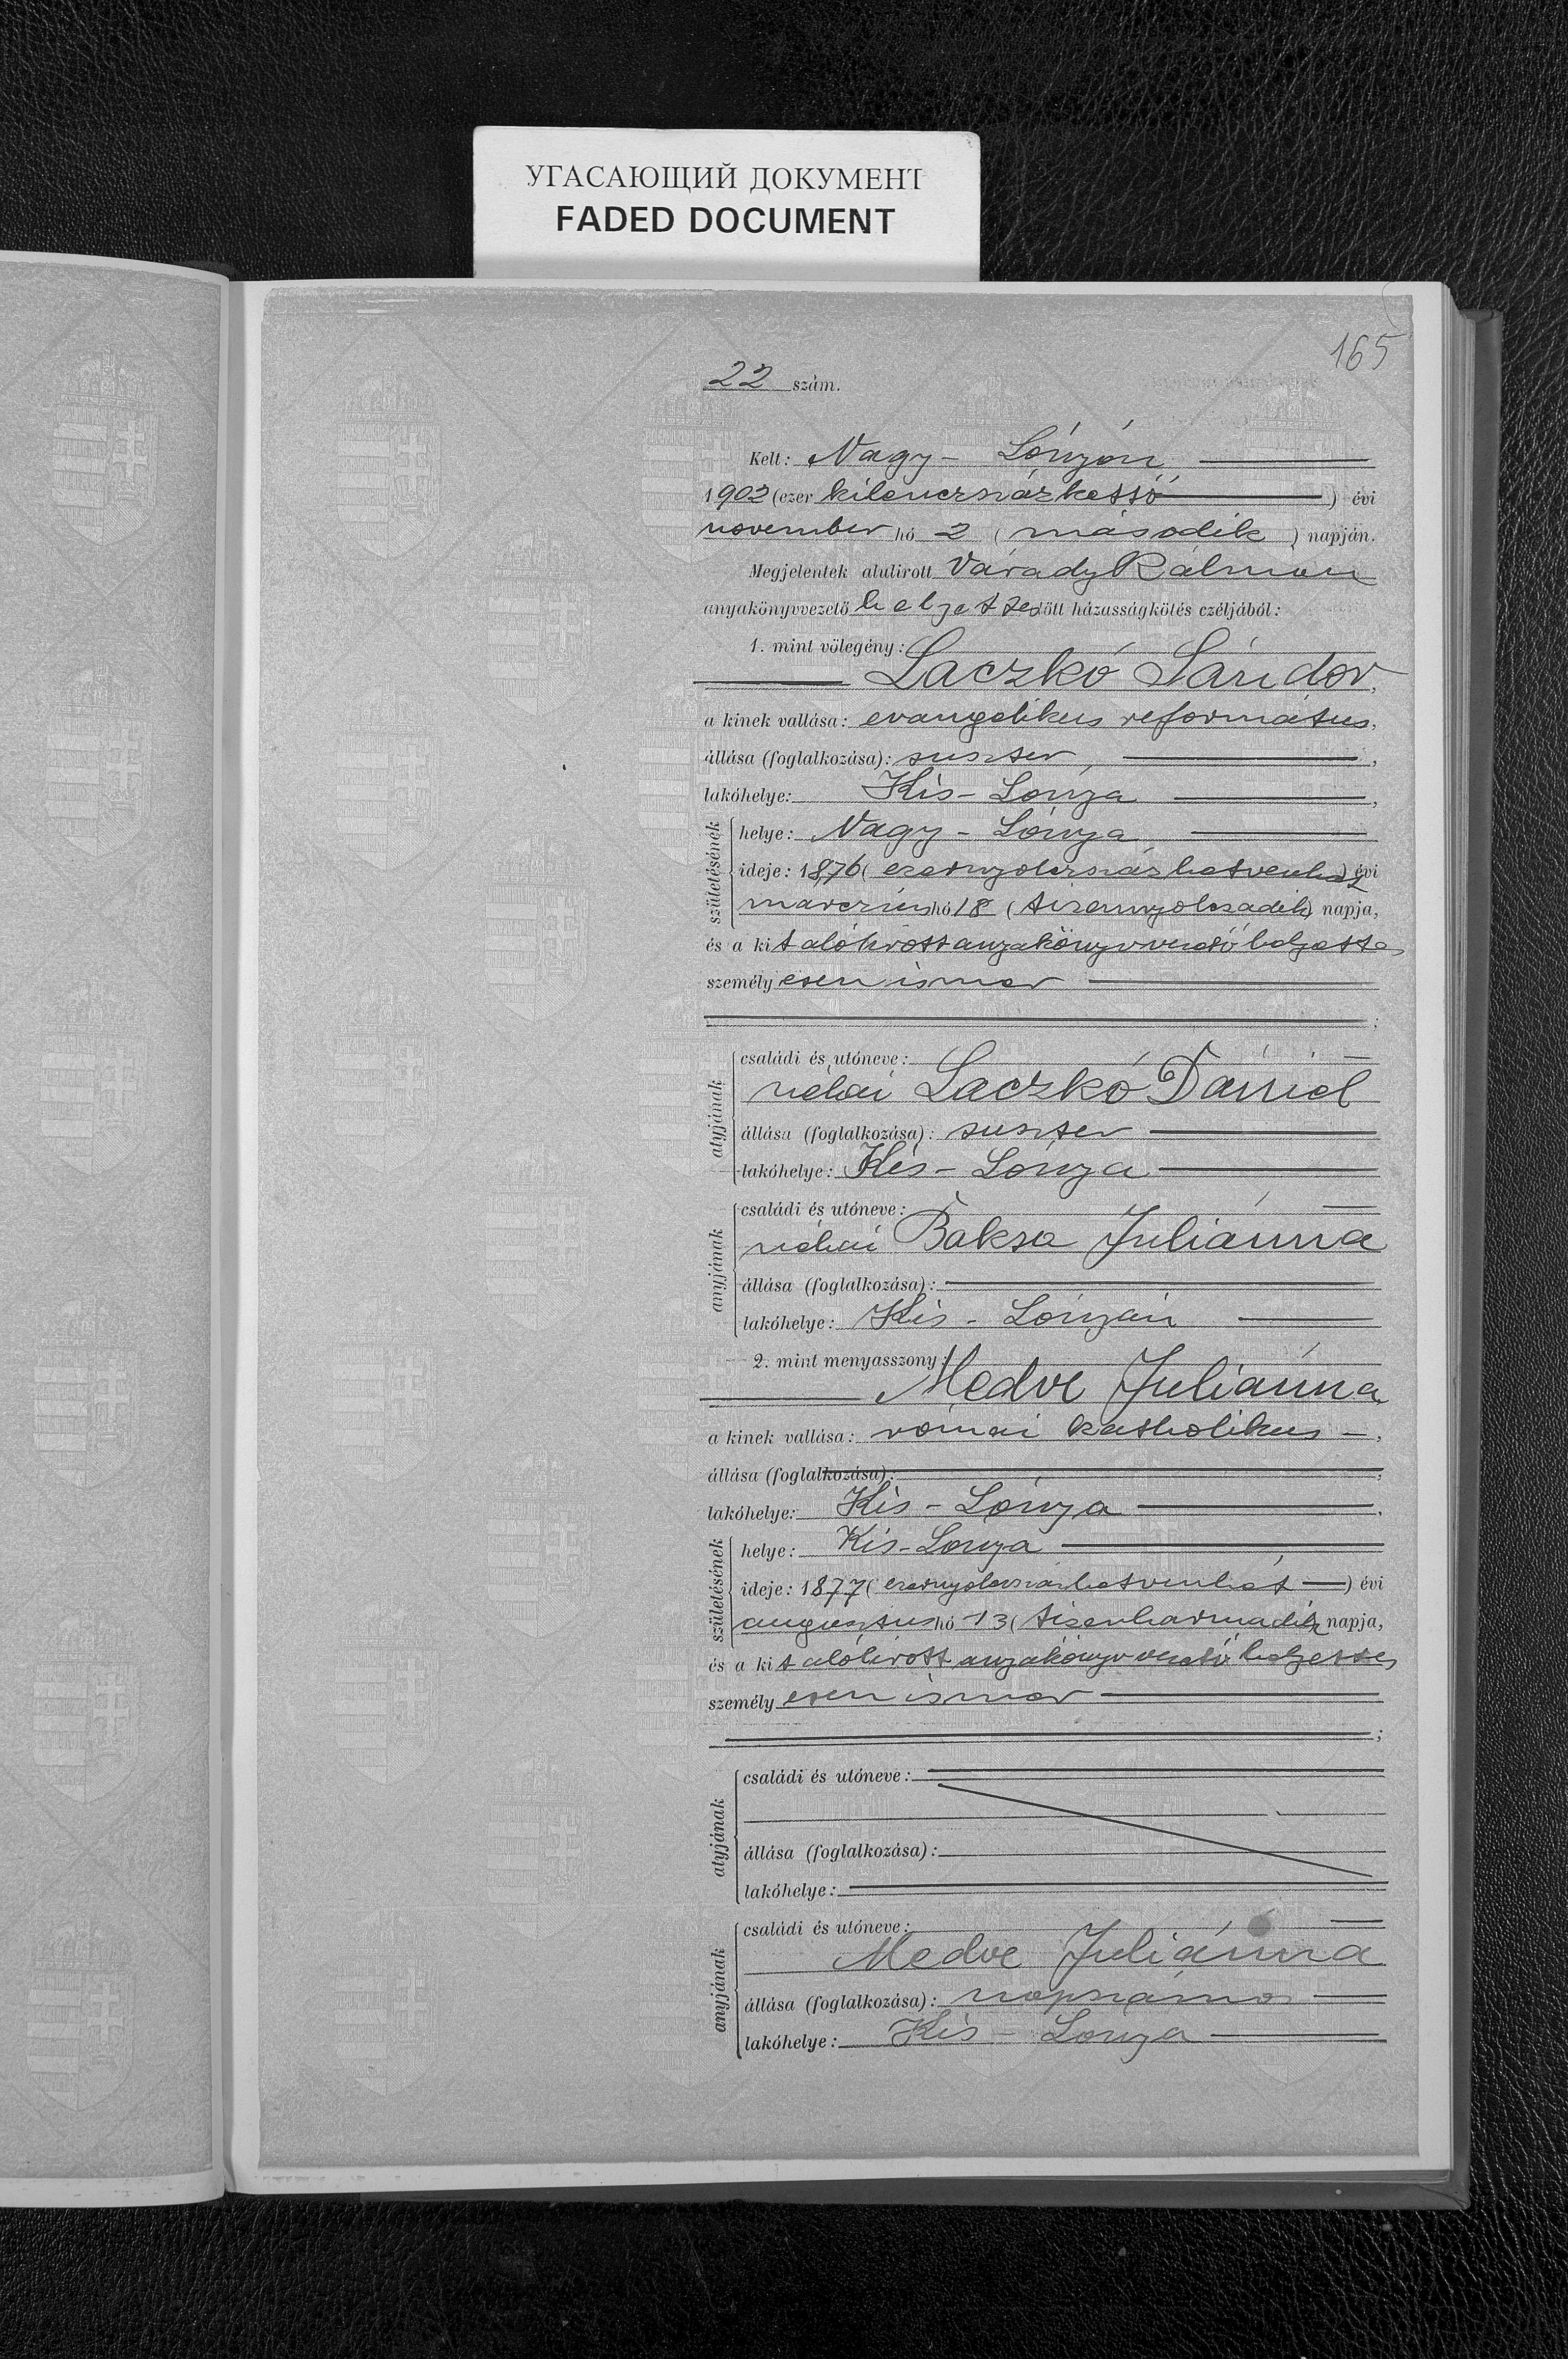 УГАСАЮЩИЙ ДОКУМЕНТ
FADED DOCUMENT
165
22 szám.
Kelt: Nagy - Lónyán
1902 (ezer kilenczszázkettő) évi
november hó 2 (második) napján.
Megjelentek alulirott Várady Kálmán
anyakönyvvezető helyettes előtt házasságkötés czéljából:
1. mint vőlegény:
Laczkó Sándor,
a kinek vallása: evangelikus református,
állása (foglalkozása): suszter,
lakóhelye: Kis - Lónya,
születésének
helye: Nagy - Lónya
ideje: 1876 (ezernyolczszázhetvenhat) évi
márczius hó 18 (tizennyolczadik) napja,
és a kit alólirott anyakönyvvezető helyettes
személyesen ismer
;
atyjának
családi és utóneve:
néhai Laczkó Dániel
állása (foglalkozása): suszter
lakóhelye: Kis - Lónya
anyjának
családi és utóneve:
néhai Baksa Juliánna
állása (foglalkozása):
lakóhelye: Kis - Lónyán
2. mint menyasszony:
Medve Juliánna,
a kinek vallása: római katholikus,
állása (foglalkozása):
lakóhelye: Kis - Lónya,
születésének
helye: Kis - Lónya
ideje: 1877 (ezernyolczszázhetvenhét) évi
augusztus hó 13 (tizenharmadik) napja,
és a kit alólirott anyakönyvvezető helyettes
személyesen ismer
;
atyjának
családi és utóneve:
állása (foglalkozása):
lakóhelye:
anyjának
családi és utóneve:
Medve Juliánna
állása (foglalkozása): napszámos
lakóhelye: Kis - Lónya